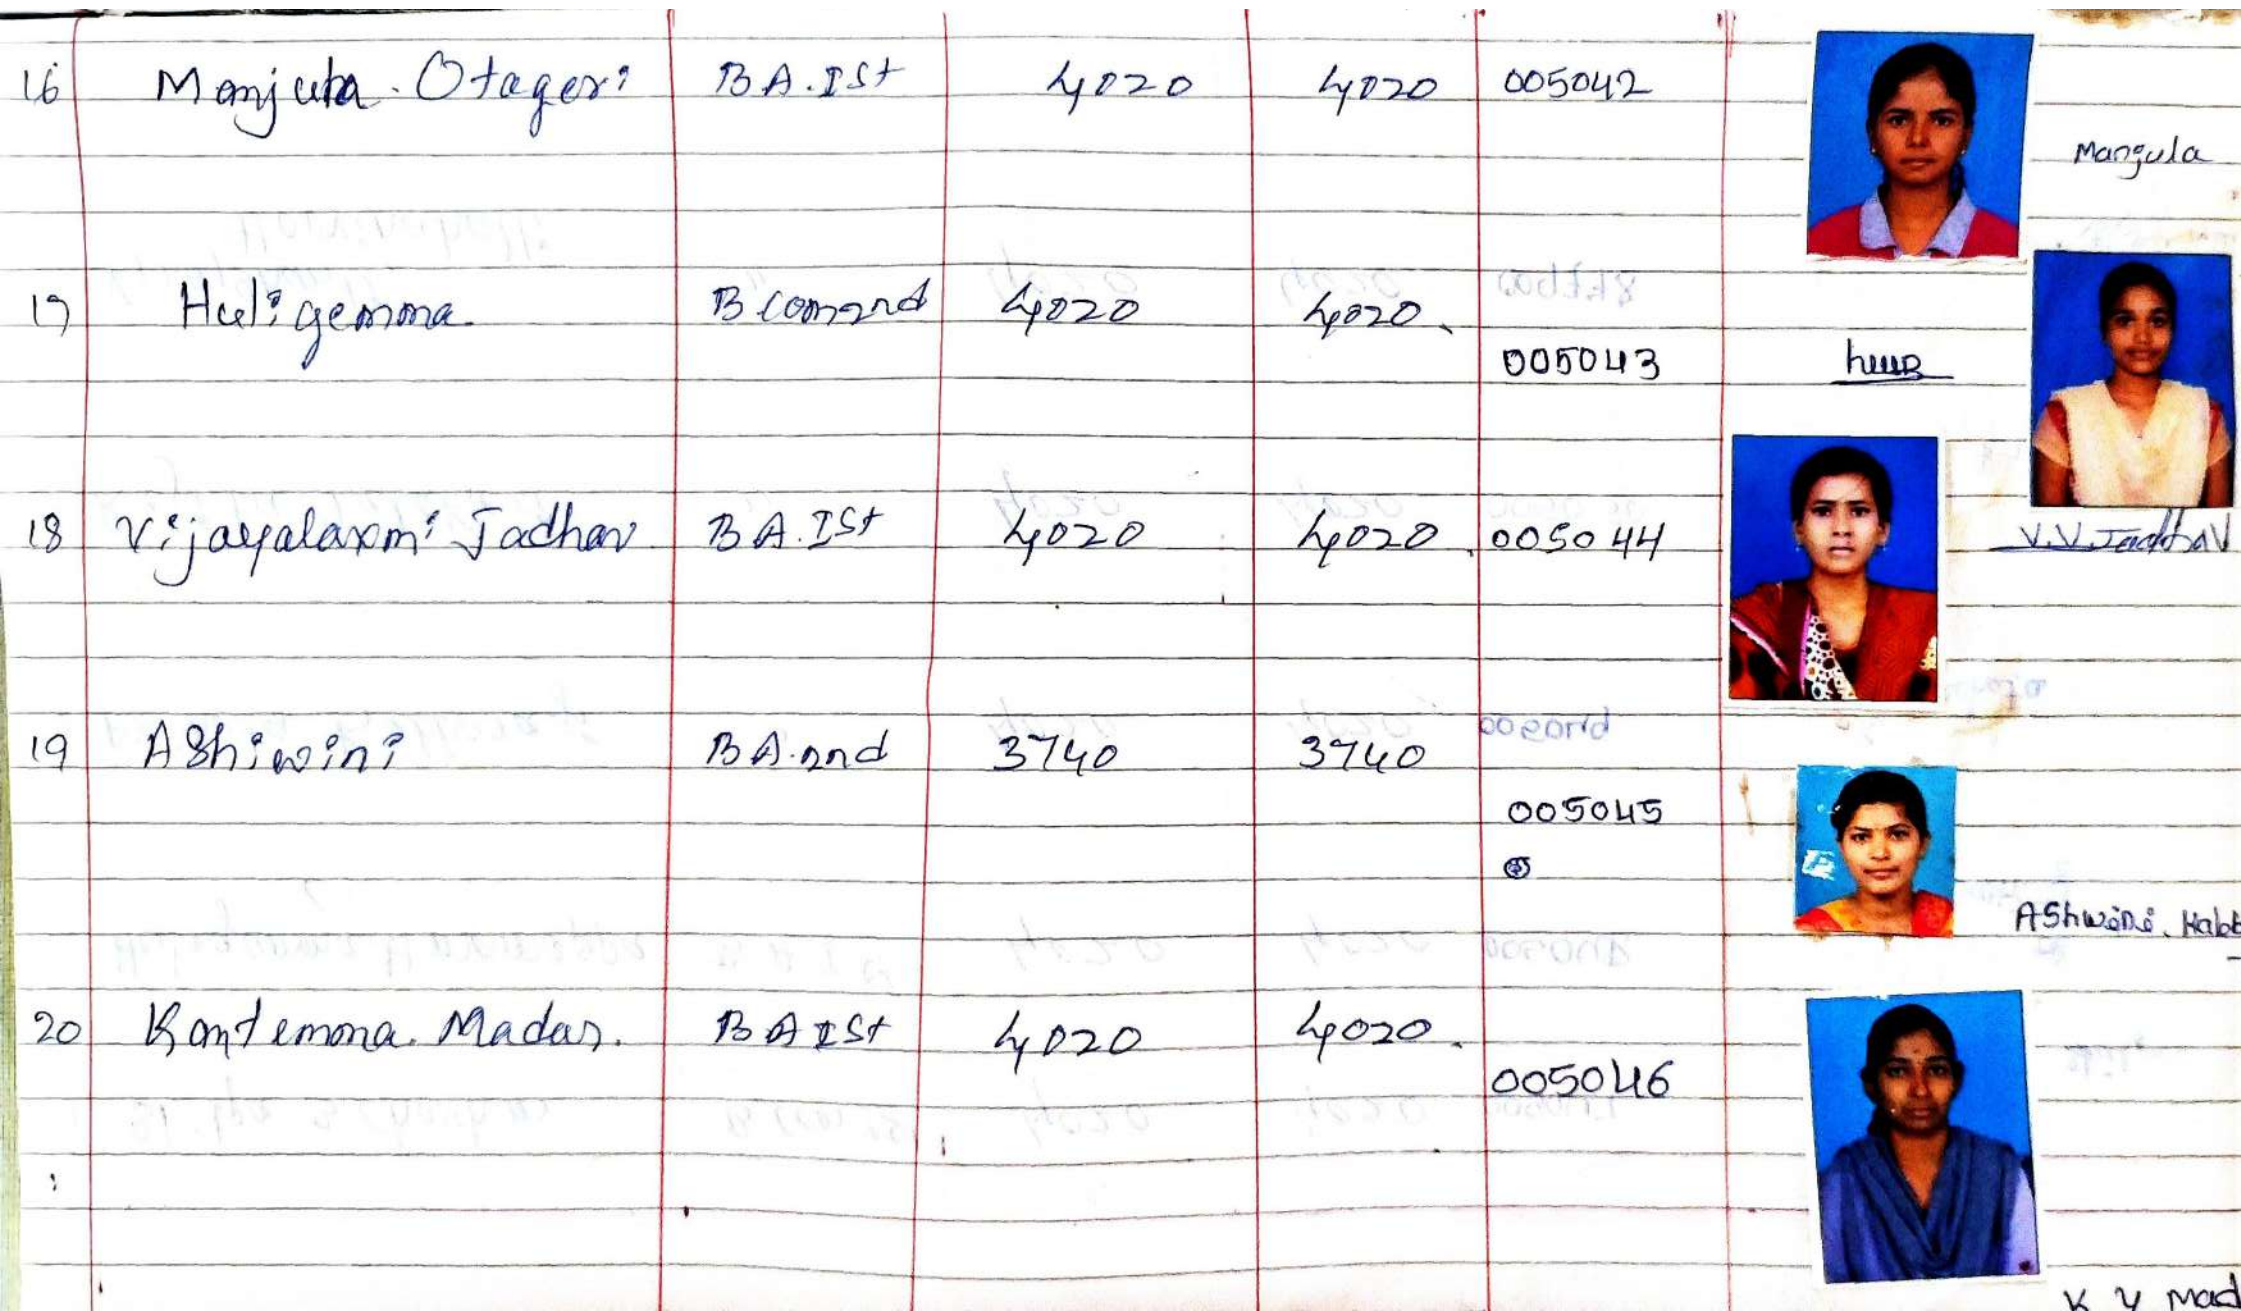 16 Manjula. Otageri BA.Ist 4020 4020 005042
Manjula
17 Huligemma. B com2nd 4020 4020.
005043
18 Vijayalaxmi Jadhav BA.Ist 4020 4020. 005044 V.V.Jadhav
19 AShiwini BA.2nd 3740 3740
005045
AShwini. Halk
20 Kantemma. Madar. BA Ist 4020 4020.
005046
K Y Mad